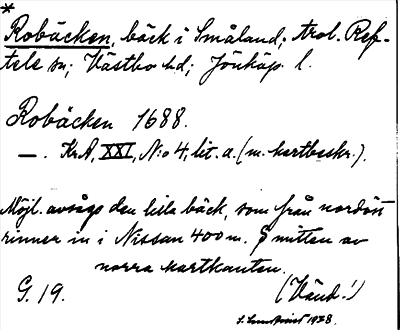 *
Robäcken, bäck i Småland; trol. Ref-
tele sn; Västbo hd; Jönköp. l.
Robäcken 1688.
—. Kr.A, XXI, N:o 4, lit. a. (m. kartbeskr.).
Möjl. avsågs den lilla bäck, som från nordöst
rinner in i Nissan 400 m. S mitten av
norra kartkanten.
G. 19. (Vänd!)
1938